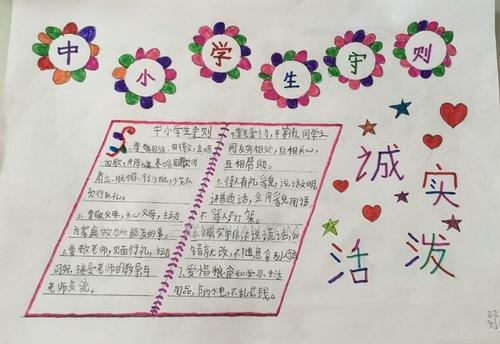 中小学生守则
中小学生守则
尊敬国旗、国徽，会唱
国歌，升降国旗、奏唱国歌时
肃立、脱帽、行注目礼，少先队
员行队礼。
2.尊敬父母，关心父母，主动
为家庭做力所能及的事。
3.尊敬老师，见面行礼，主动
问好，接受老师的教导与
老师交流。
尊老爱幼，平等待人。同学之
间友好相处，互相关心，
互相帮助。
待人有礼貌，说话文明，
讲普通话，会用礼貌用语
不骂人，不打架。
诚实守信，不说谎话，知
错就改，不随意拿别人
爱惜粮食和学习、生活
用品，节约水电，不乱花钱。
诚实
活泼